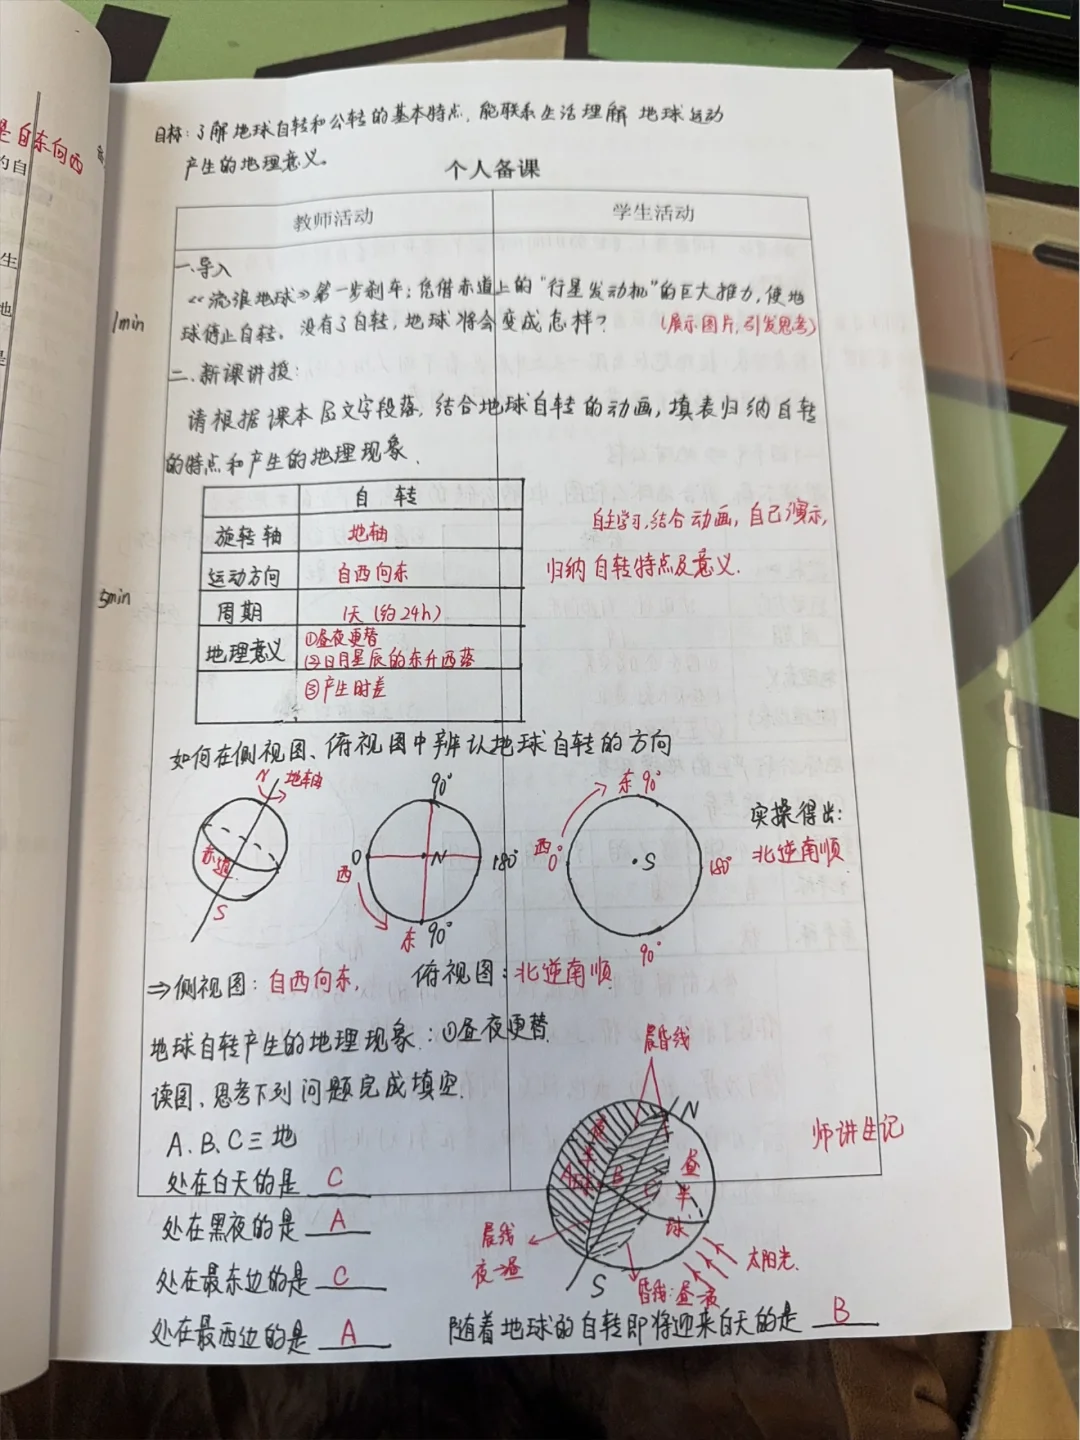 是自东向西
的自
生
地
是
目标：了解地球自转和公转的基本特点，能联系生活理解地球运动
产生的地理意义。
个人备课
教师活动 学生活动
一.导入
《流浪地球》第一步刹车：凭借赤道上的"行星发动机"的巨大推力，使地
1min
球停止自转。没有了自转，地球将会变成怎样？ （展示图片,引发思考）
二、新课讲授：
请根据课本 文字段落，结合地球自转的动画，填表归纳自转
的特点和产生的地理现象.
自 转
旋转轴 地轴
运动方向 自西向东
周期 1天（约24h）
地理意义 ①昼夜更替
②日月星辰的东升西落
③产生时差
自主学习,结合动画，自己演示，
归纳自转特点及意义.
5min
如何在侧视图、俯视图中辨认地球自转的方向
N 地轴
赤道
S
90°
0 N 180°
西
东 90°
东 90°
西 0° ·S 180°
90°
实操得出：
北逆南顺
⇒侧视图：自西向东， 俯视图：北逆南顺
地球自转产生的地理现象：①昼夜更替.
读图、思考下列问题完成填空.
A.B.C三地
处在白天的是 C
处在黑夜的是 A
处在最东边的是 C
处在最西边的是 A
晨昏线
N
夜半球
A B C
昼半球
师讲生记
晨线
夜→昼
S
昏线：昼→夜
太阳光.
随着地球的自转即将迎来白天的是 B